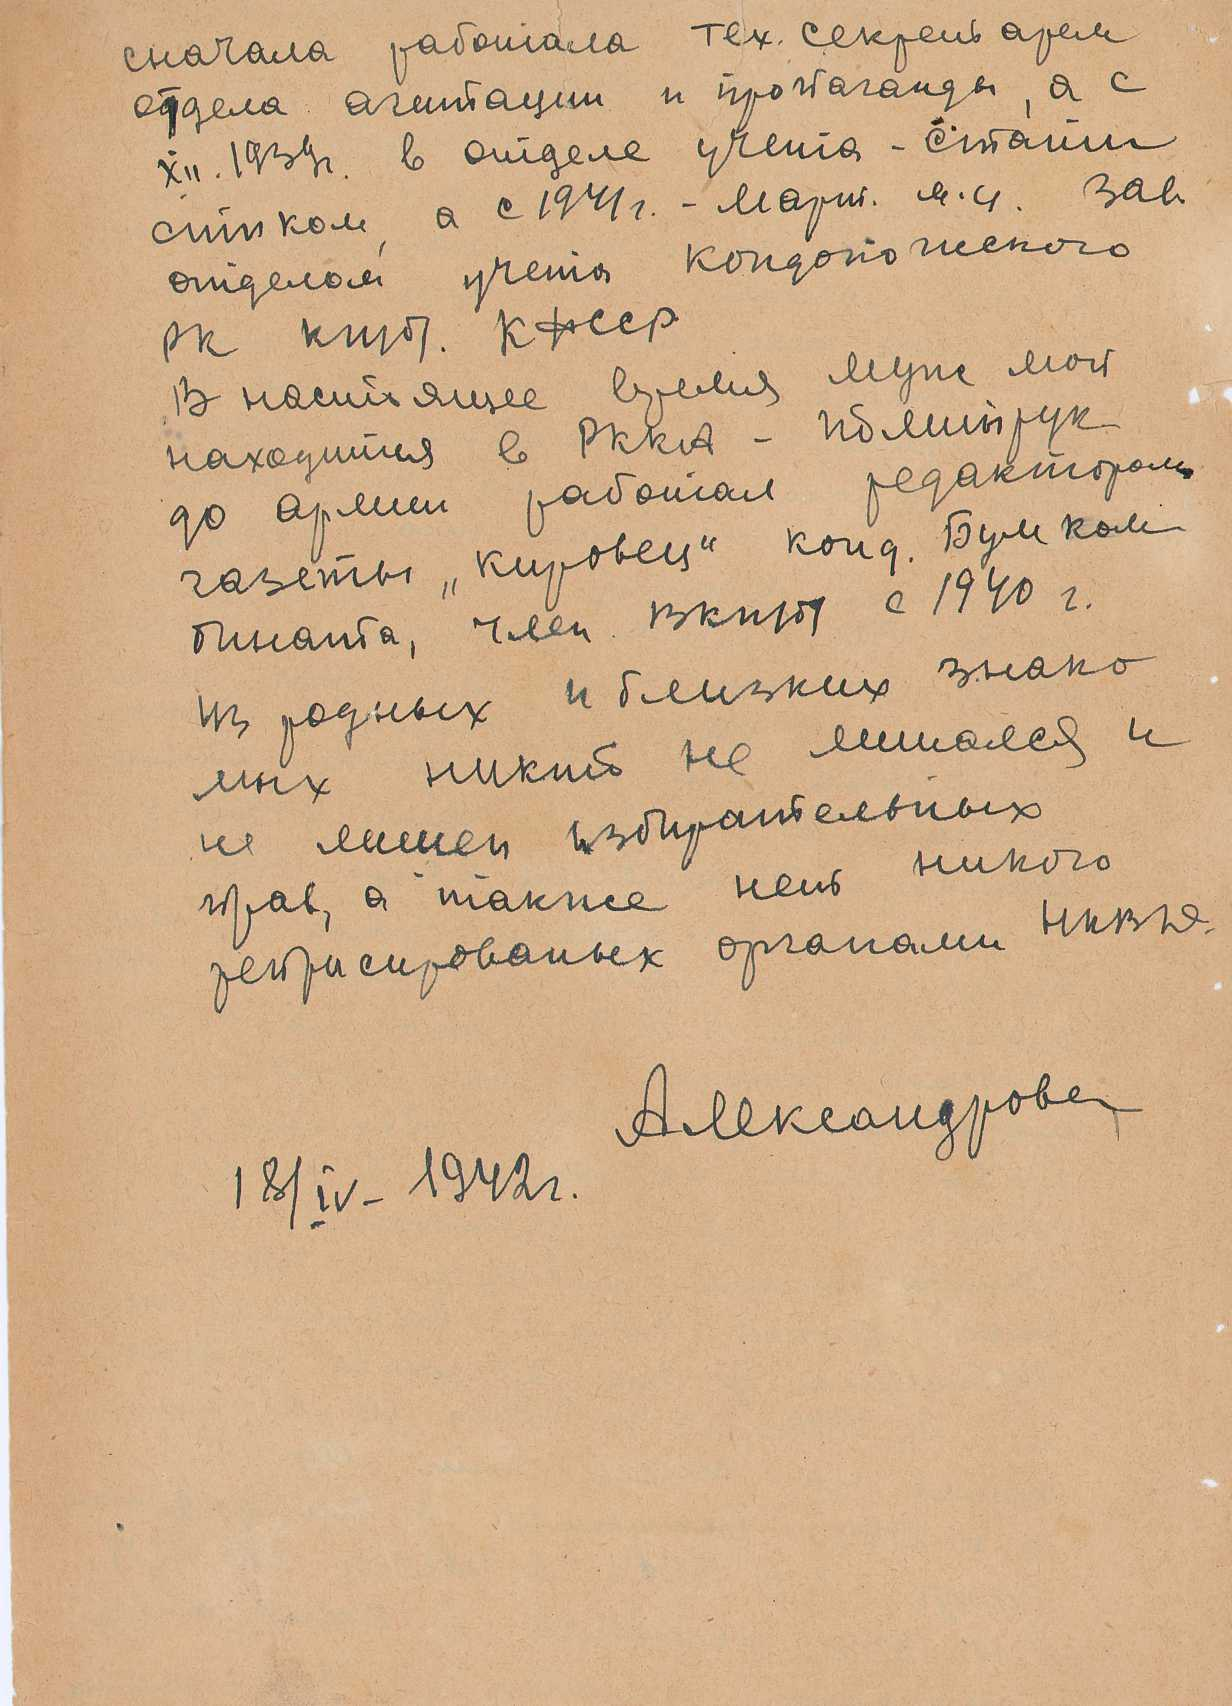 сначала работала тех. секретарем
отдела агитации и пропаганды, а с
XII. 1939г. в отделе учета - стати
стиком, а с 1941г. - март. м-ц. Зав
отделом учета Кондопожского
РК КП(б). КФССР
В настоящее время муж мой
находится в РККА - политрук
до армии работал редактором
газеты „Кировец" конд. Бумком
бината, член ВКП(б) с 1940 г.
Из родных и близких знако
мых никто не лишался и
не лишен избирательных
прав, а также нет никого
реприсированых органами НКВД.
Александрова
18/IV - 1942г.